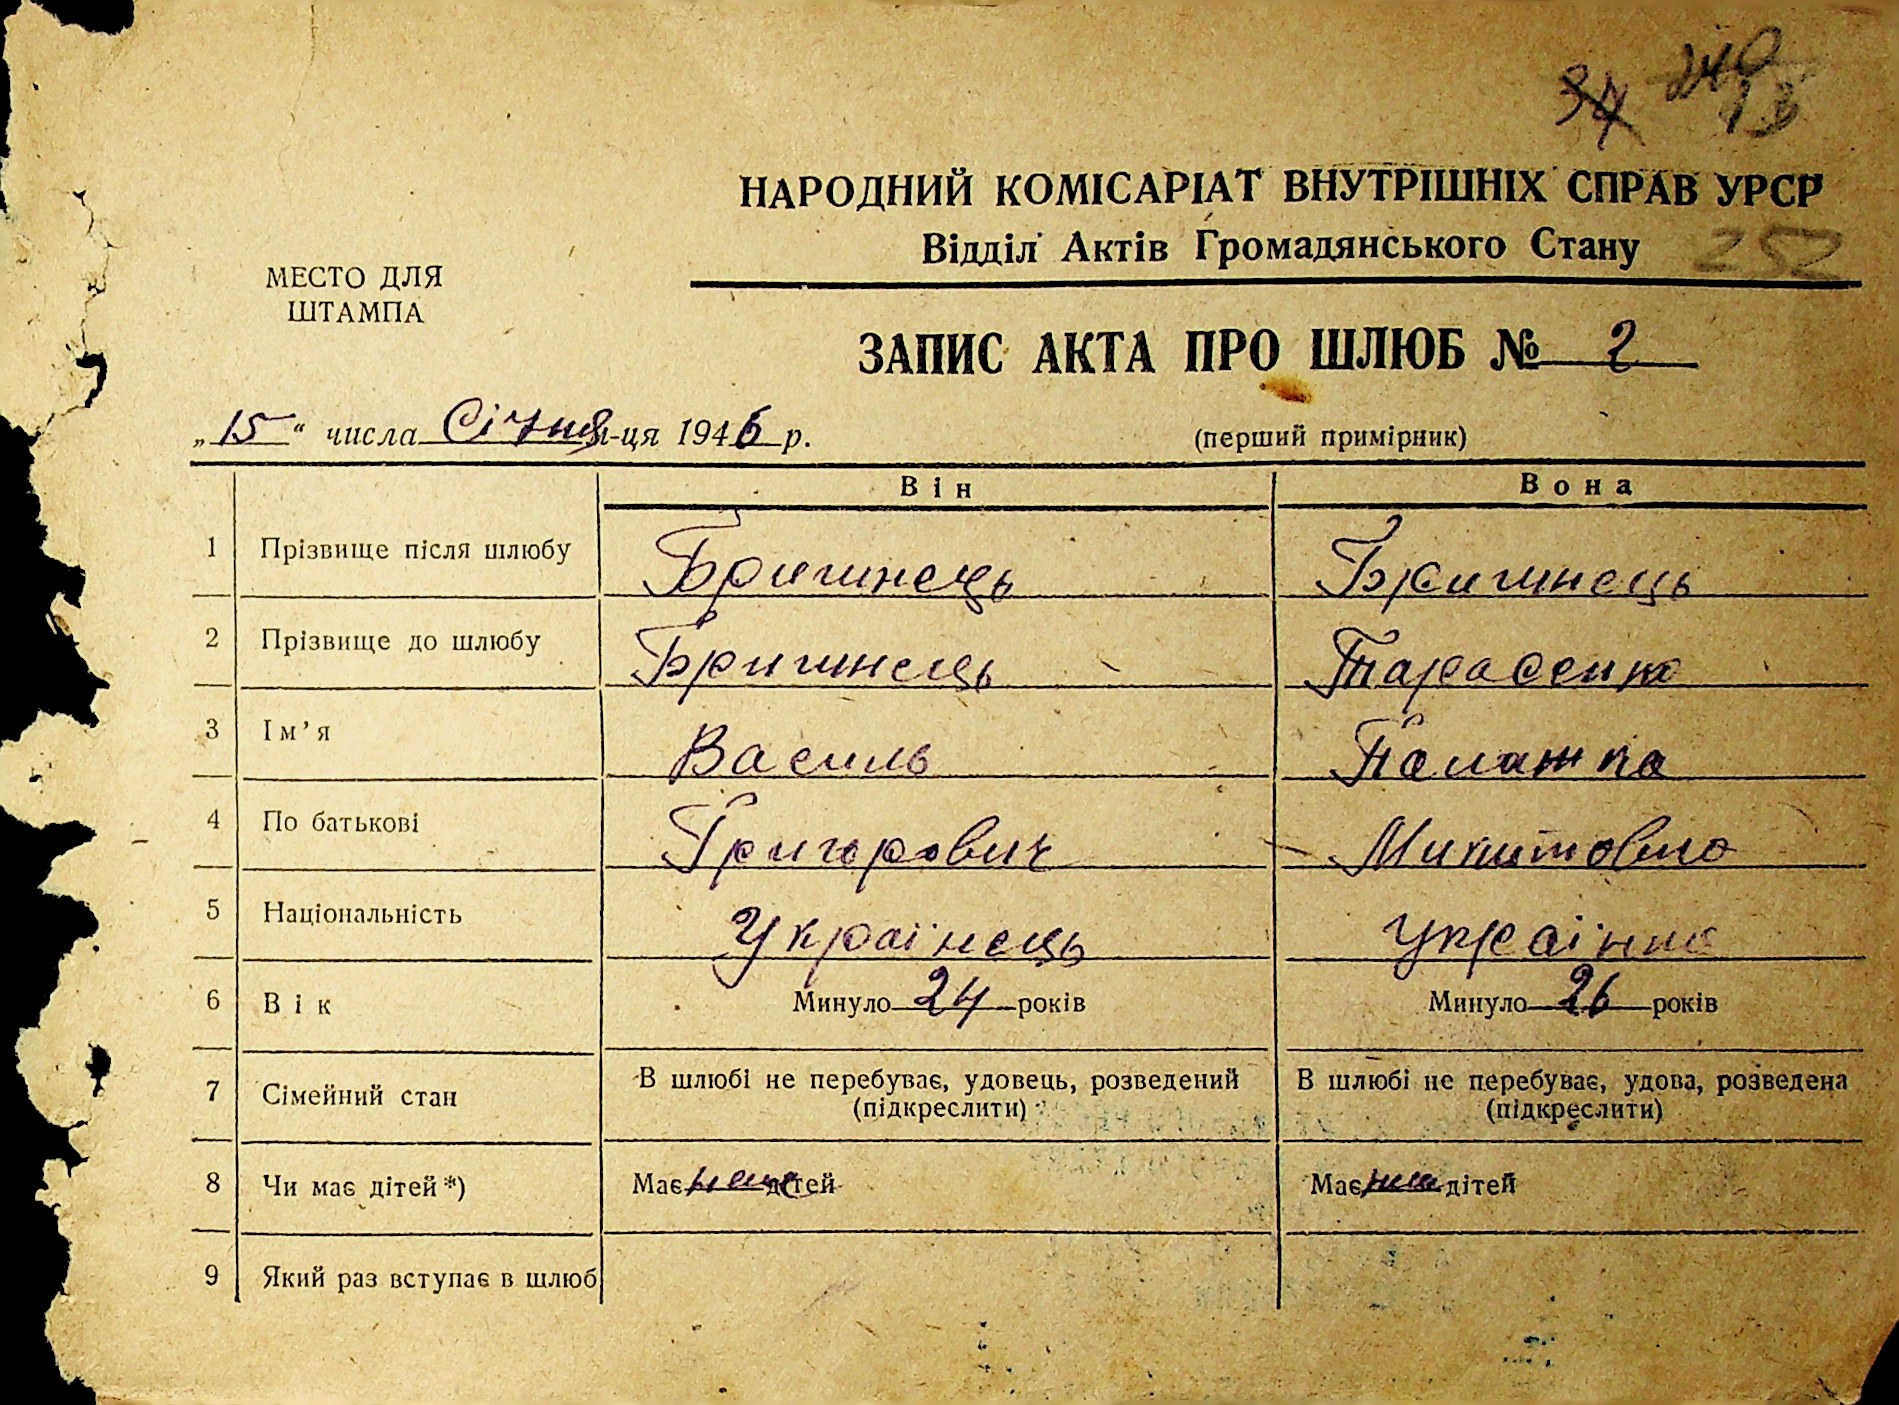 34 240
13
НАРОДНИЙ КОМІСАРІАТ ВНУТРІШНІХ СПРАВ УРСР
Відділ Актів Громадянського Стану 252
МЕСТО ДЛЯ
ШТАМПА
ЗАПИС АКТА ПРО ШЛЮБ № 2
„15“ числа Січня м-ця 1946 р.
(перший примірник)
Він Вона
1 Прізвище після шлюбу Бригинець Бригинець
2 Прізвище до шлюбу Бригинець Тарасенко
3 Ім’я Василь Палажка
4 По батькові Григорович Микитовна
5 Національність Українець Українка
6 Вік Минуло 24 років Минуло 26 років
7 Сімейний стан В шлюбі не перебуває, удовець, розведений (підкреслити) В шлюбі не перебуває, удова, розведена (підкреслити)
8 Чи має дітей*) Має дітей Має дітей
9 Який раз вступає в шлюб